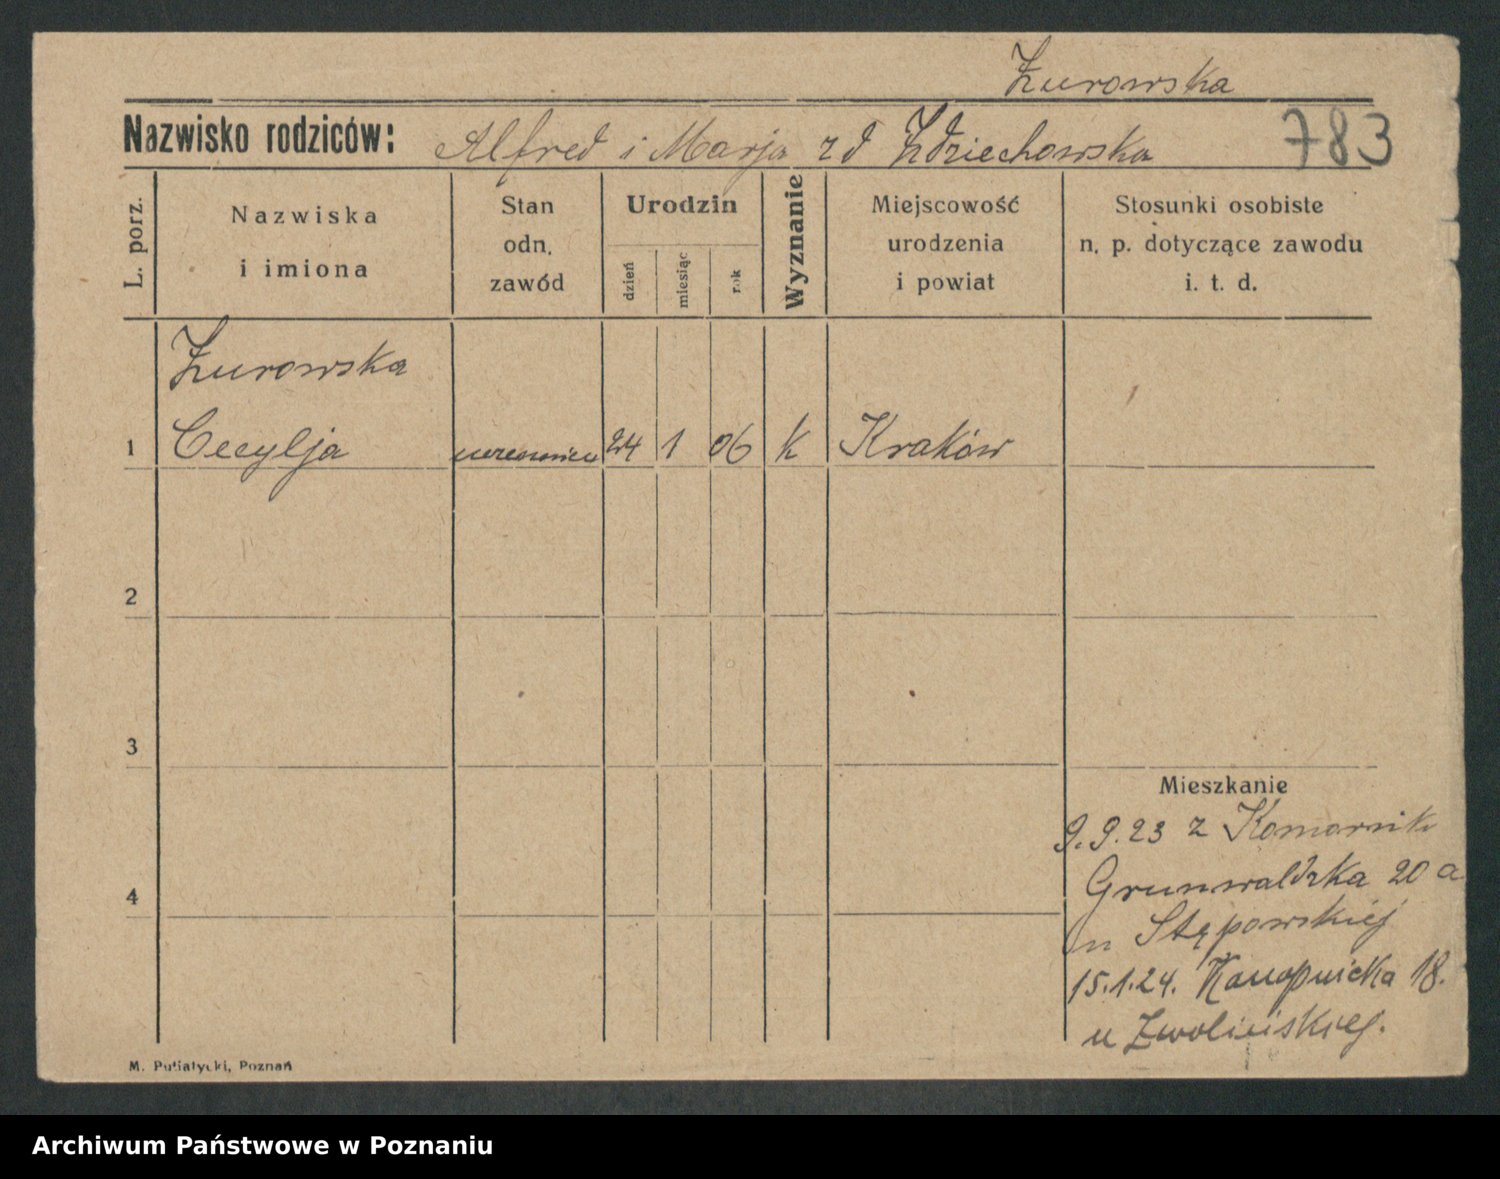 Żurowska
Nazwisko rodziców: Alfred i Marja z d Zdziechowska 783
L. porz.
Nazwiska
i imiona
Stan
odn.
zawód
Urodzin
dzień
miesiąc
rok
Wyznanie
Miejscowość
urodzenia
i powiat
Stosunki osobiste
n. p. dotyczące zawodu
i. t. d.
Żurowska
1 Cecylja uczennica 24 1 06 k Kraków
2
3
4
Mieszkanie
9.9.23 z Komornik
Grunwaldzka 20 a
u Stępowskiej
15.1.24. Konopnicka 18.
u Zwolińskiej.
M. Putiatycki, Poznań
Archiwum Państwowe w Poznaniu